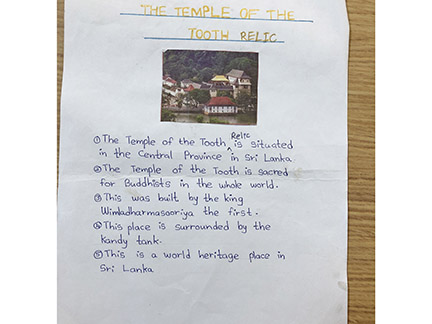 THE TEMPLE OF THE
TOOTH RELIC
① The Temple of the Tooth Relic is situated
in the Central Province in Sri Lanka
② The Temple of the Tooth is sacred
for Buddhists in the whole world.
③ This was built by the king
Wimladharmasooriya the first.
④ This place is surrounded by the
kandy tank.
⑤ This is a world heritage place in
Sri Lanka